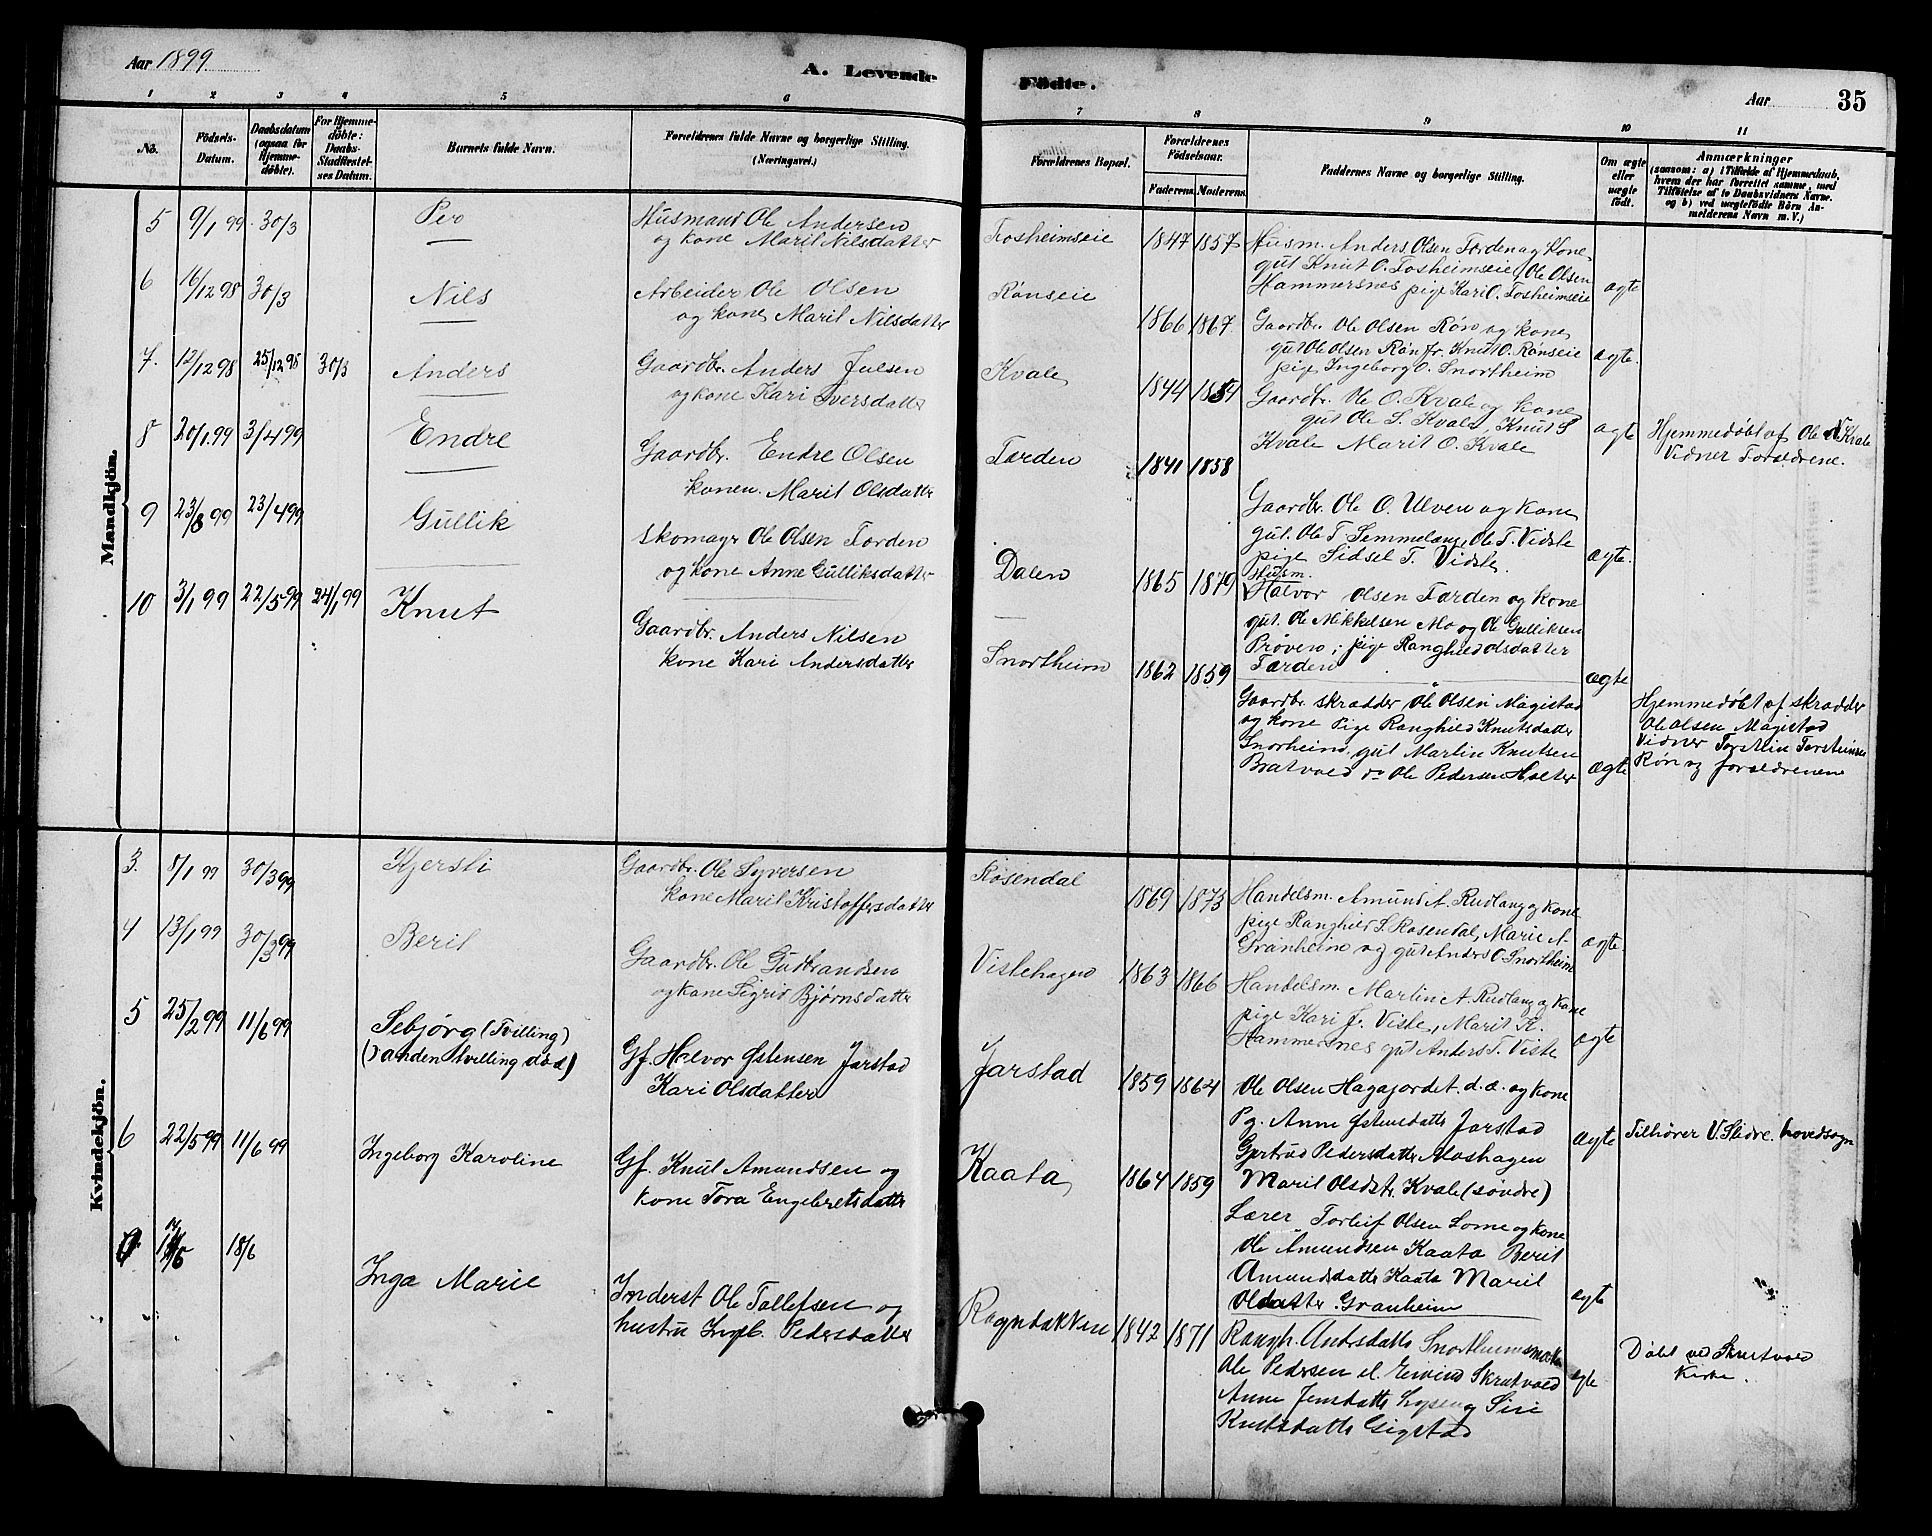 Aar 1899
A. Levende
Födte.
Aar
35
1 2 3 4 5 6 7 8 9 10 11
No.
Födsels-Datum.
Daabsdatum (ogsaa for Hjemme-döbte).
For Hjemme-döbte: Daabs-Stadfæstel-ses Datum.
Barnets fulde Navn.
Forældrenes fulde Navne og borgerlige Stilling. (Næringsvei.)
Forældrenes Bopæl.
Forældrenes Födselsaar.
Faderens. Moderens.
Faddernes Navne og borgerlige Stilling.
Om ægte eller uægte födt.
Anmærkninger
(saasom: a) i Tilfælde af Hjemmedaab, hvem der har forrettet samme, med Tilföielse af to Daabsvidners Navne, og b) ved uægtefödte Börn An-melderens Navn m. V.)
Mandkjön.
5 9/1 99. 30/3 Per
Husmand Ole Andersen
og kone Marit Nilsdatter
Fosheimseie 1847 1857
Husm. Anders Olsen Førden og kone
gut Knut O. Fosheimseie, Ole Olsen
Hammersnes pige Kari O. Fosheimseie ægte
6 16/12 98 30/3 Nils
Arbeider Ole Olsen
og kone Marit Nilsdatter
Rønseie 1866 1867
Gaardbr. Ole Olsen Røn og kone
gut Ole Olsen Røn fr. Knut O. Rønseie
pige Ingeborg O. Snortheim ægte.
7. 12/12 98 25/12 98 30/3 Anders
Gaardbr. Anders Julsen
og kone Kari Iversdatter
Kvale 1844 1854
Gaardbr. Ole O. Kvale og kone
gut Ole S. Kvale, Knut S
Kvale Marit O. Kvale ægte
Hjemmedøbt af Ole N Kvale
Vidner Forældrene.
8 20/1 99 3/4 99 Endre
Gaardbr. Endre Olsen
konen. Marit Olsdatter
Førden 1841 1858
Gaardbr. Ole O. Ulven og kone
gut. Ole T. Semmelæng, Ole T. Vidste
pige Sidsel T. Vidste. ægte.
9 23/3 99 23/4 99 Gullik
Skomager Ole Olsen Førden
og kone Anne Gulliksdatter
Dalen 1865 1879
Husm.
Halvor Olsen Førden og kone
gut. Ole Mikkelsen Mo og Ole Gulliksen
Prøven, pige Ranghild Olsdatter
Førden ægte
10 3/1 99 22/5 99 24/1 99 Knut
Gaardbr. Anders Nilsen
kone Kari Andersdatter
Snortheim 1862 1859
Gaardbr. skrædder Ole Olsen Magistad
og kone Pige Ranghild Knutsdatter
Snorheim, gut Martin Knutsen
Bratvold do Ole Pedersen Halter ægte
Hjemmedøbt af skrædder
Ole Olsen Magistad
Vidner Torstein Torsteinsen
Røn og forældrenene
Kvindekjön.
3. 8/1 99 30/3 99 Kjersti
Gaardbr. Ole Syversen
kone Marit Kristoffersdatter
Rosendal 1869 1873
Handelsm. Amund A. Rudlang og kone
pige Ranghild S. Rosendal, Marie A
Granheim og gut Anders O. Snortheim ægte
4 13/1 99 30/3 99 Berit
Gaardbr. Ole Gudbrandsen
og kone Sigrid Bjørnsdatter
Vistehagen 1863 1866
Handelsm. Martin A. Rudlang og kone
pige Kari J. Viste, Marit K.
Hammersnes gut Anders T. Viste ægte
5 25/2 99 11/6 99 Sebjørg (Tvilling)
(anden tvilling død)
Gf. Halvor Østensen Jarstad
Kari Olsdatter
Jarstad 1859 1864
Ole Olsen Hagajordet. d.æ. og kone
Pg. Anne Østensdatter Jarstad
Gjertrud Pedersdatter Moshagen
Marit Olsdtr. Kvale (søndre) ægte
Tilhører V. Slidre. hovedsogn
6 22/5 99 11/6 99 Ingeborg Karoline
Gf. Knut Amundsen og
kone Tora Engebretsdatter
Kaata 1864 1859
Lærer Torleif Olsen Lome og kone
Ole Amundsen Kaata Berit
Amundsdatter Kaata Marit
Olsdatter Granheim ægte
18/6 Inga Marie
Inderst Ole Tollefsen og
hustru Ingb. Pedersdatter
1842 1871
Rangh. Andrsdatter
Ole Pedersen el. Eivind Skrutvold
Anne Jensdatter Lysen og Siri
Knutsdatter Gigstad ægte
Døbt ved Skrutvold
Kirke.